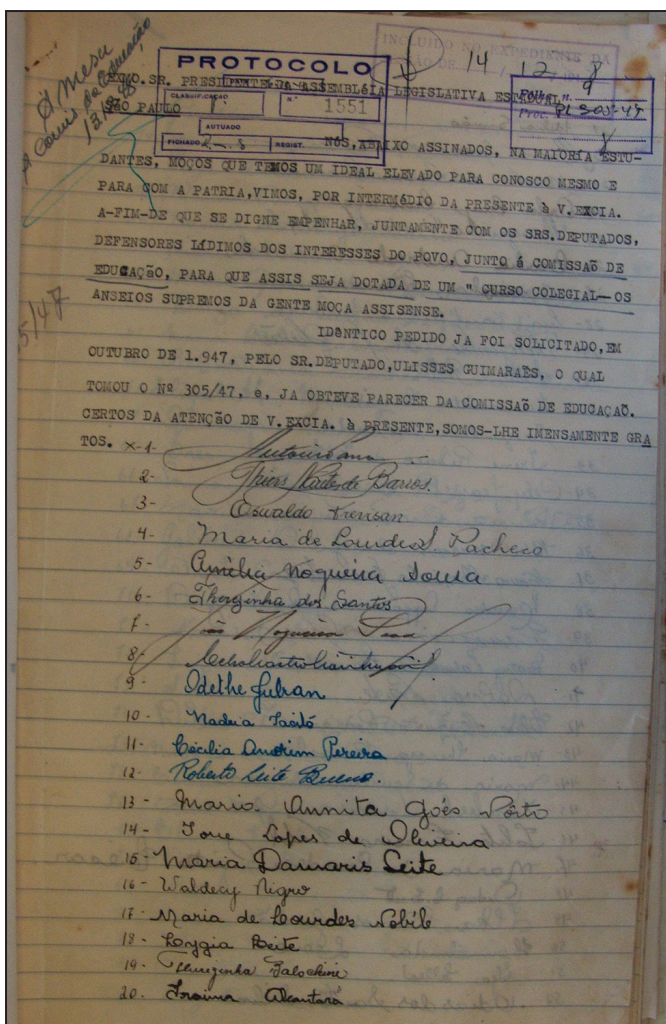 À Mesa
À Comis. de Educação
INCLUIDO NO EXPEDIENTE DA
14 12 8
PROTOCOLO
DATA
CLASSIFICAÇÃO
N.º
1551
AUTUADO
FICHADO
REGIST.
Folha n. 9
Proc. PL 305-47
EXMO.SR. PRESIDENTE DA ASSEMBLéIA LEGISLATIVA ESTADUAL
SÃO PAULO
NÓS, ABAIXO ASSINADOS, NA MAIORIA ESTU-
DANTES, MOÇOS QUE TEMOS UM IDEAL ELEVADO PARA CONOSCO MESMO E
PARA COM A PATRIA,VIMOS, POR INTERMÉDIO DA PRESENTE à V.EXCIA.
A-FIM-DE QUE SE DIGNE EMPENHAR, JUNTAMENTE COM OS SRS.DEPUTADOS,
DEFENSORES LÍDIMOS DOS INTERESSES DO POVO, JUNTO á COMISSAõ DE
EDUCAÇãO, PARA QUE ASSIS SEJA DOTADA DE UM " CURSO COLEGIAL—OS
ANSEIOS SUPREMOS DA GENTE MOÇA ASSISENSE.
5/47
IDêNTICO PEDIDO JA FOI SOLICITADO,EM
OUTUBRO DE 1.947, PELO SR.DEPUTADO,ULISSES GUIMARAẽS, O QUAL
TOMOU O Nº 305/47, e, JA OBTEVE PARECER DA COMISSAõ DE EDUCAÇAO.
CERTOS DA ATENÇÃO DE V.EXCIA. à PRESENTE,SOMOS-LHE IMENSAMENTE GRA
TOS. X-1-
2- de Barros.
3- Oswaldo
4- Maria de Lourdes S. Pacheco
5- Amélia Nogueira Sousa
6- Therezinha dos Santos
7- Nogueira
8-
9- Odethe Jubran
10- Nadria
11- Cecília Amorim Pereira
12- Roberto Leite Bueno.
13- Maria Annita Goés Pôrto
14- Lopes de Oliveira
15- Maria Damaris Leite
16- Waldecy Nigro
17- Maria de Lourdes Nobile
18- Lygia Leite
19- Therezinha
20. Alcantara